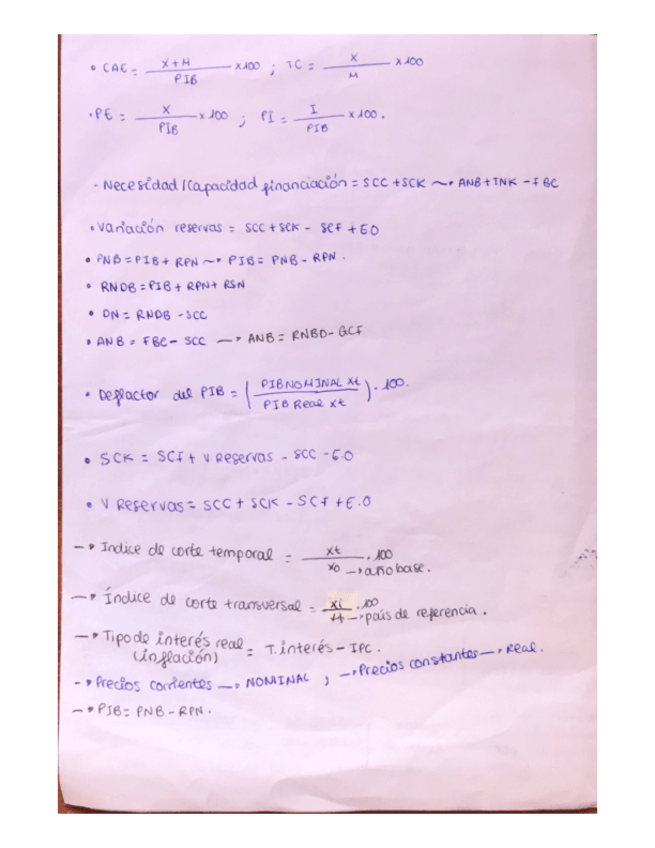 • CAE = X+M / PIB x100 ; TC = X / M x100
• PE = X / PIB x100 ; PI = I / PIB x100.
- Necesidad/Capacidad financiación = SCC + SCK ~→ ANB + TNK - FBC
• Variación reservas = SCC + SCK - SCF + EO
• PNB = PIB + RPN ~→ PIB = PNB - RPN.
• RNDB = PIB + RPN + RSN
• DN = RNDB - SCC
• ANB = FBC - SCC —→ ANB = RNBD - GCF
• Deflactor del PIB = (PIB NOMINAL Xt / PIB Real Xt) · 100.
• SCK = SCF + V Reservas - SCC - E.O
• V Reservas = SCC + SCK - SCF + E.O
—→ Indice de corte temporal = Xt / Xo · 100 —→ año base.
—→ Índice de corte transversal = Xi / · 100 —→ país de referencia.
—→ Tipo de interés real = T. interés - IPC.
(inflación)
—→ Precios corrientes —→ NOMINAL ; —→ Precios constantes —→ Real.
—→ PIB = PNB - RPN.